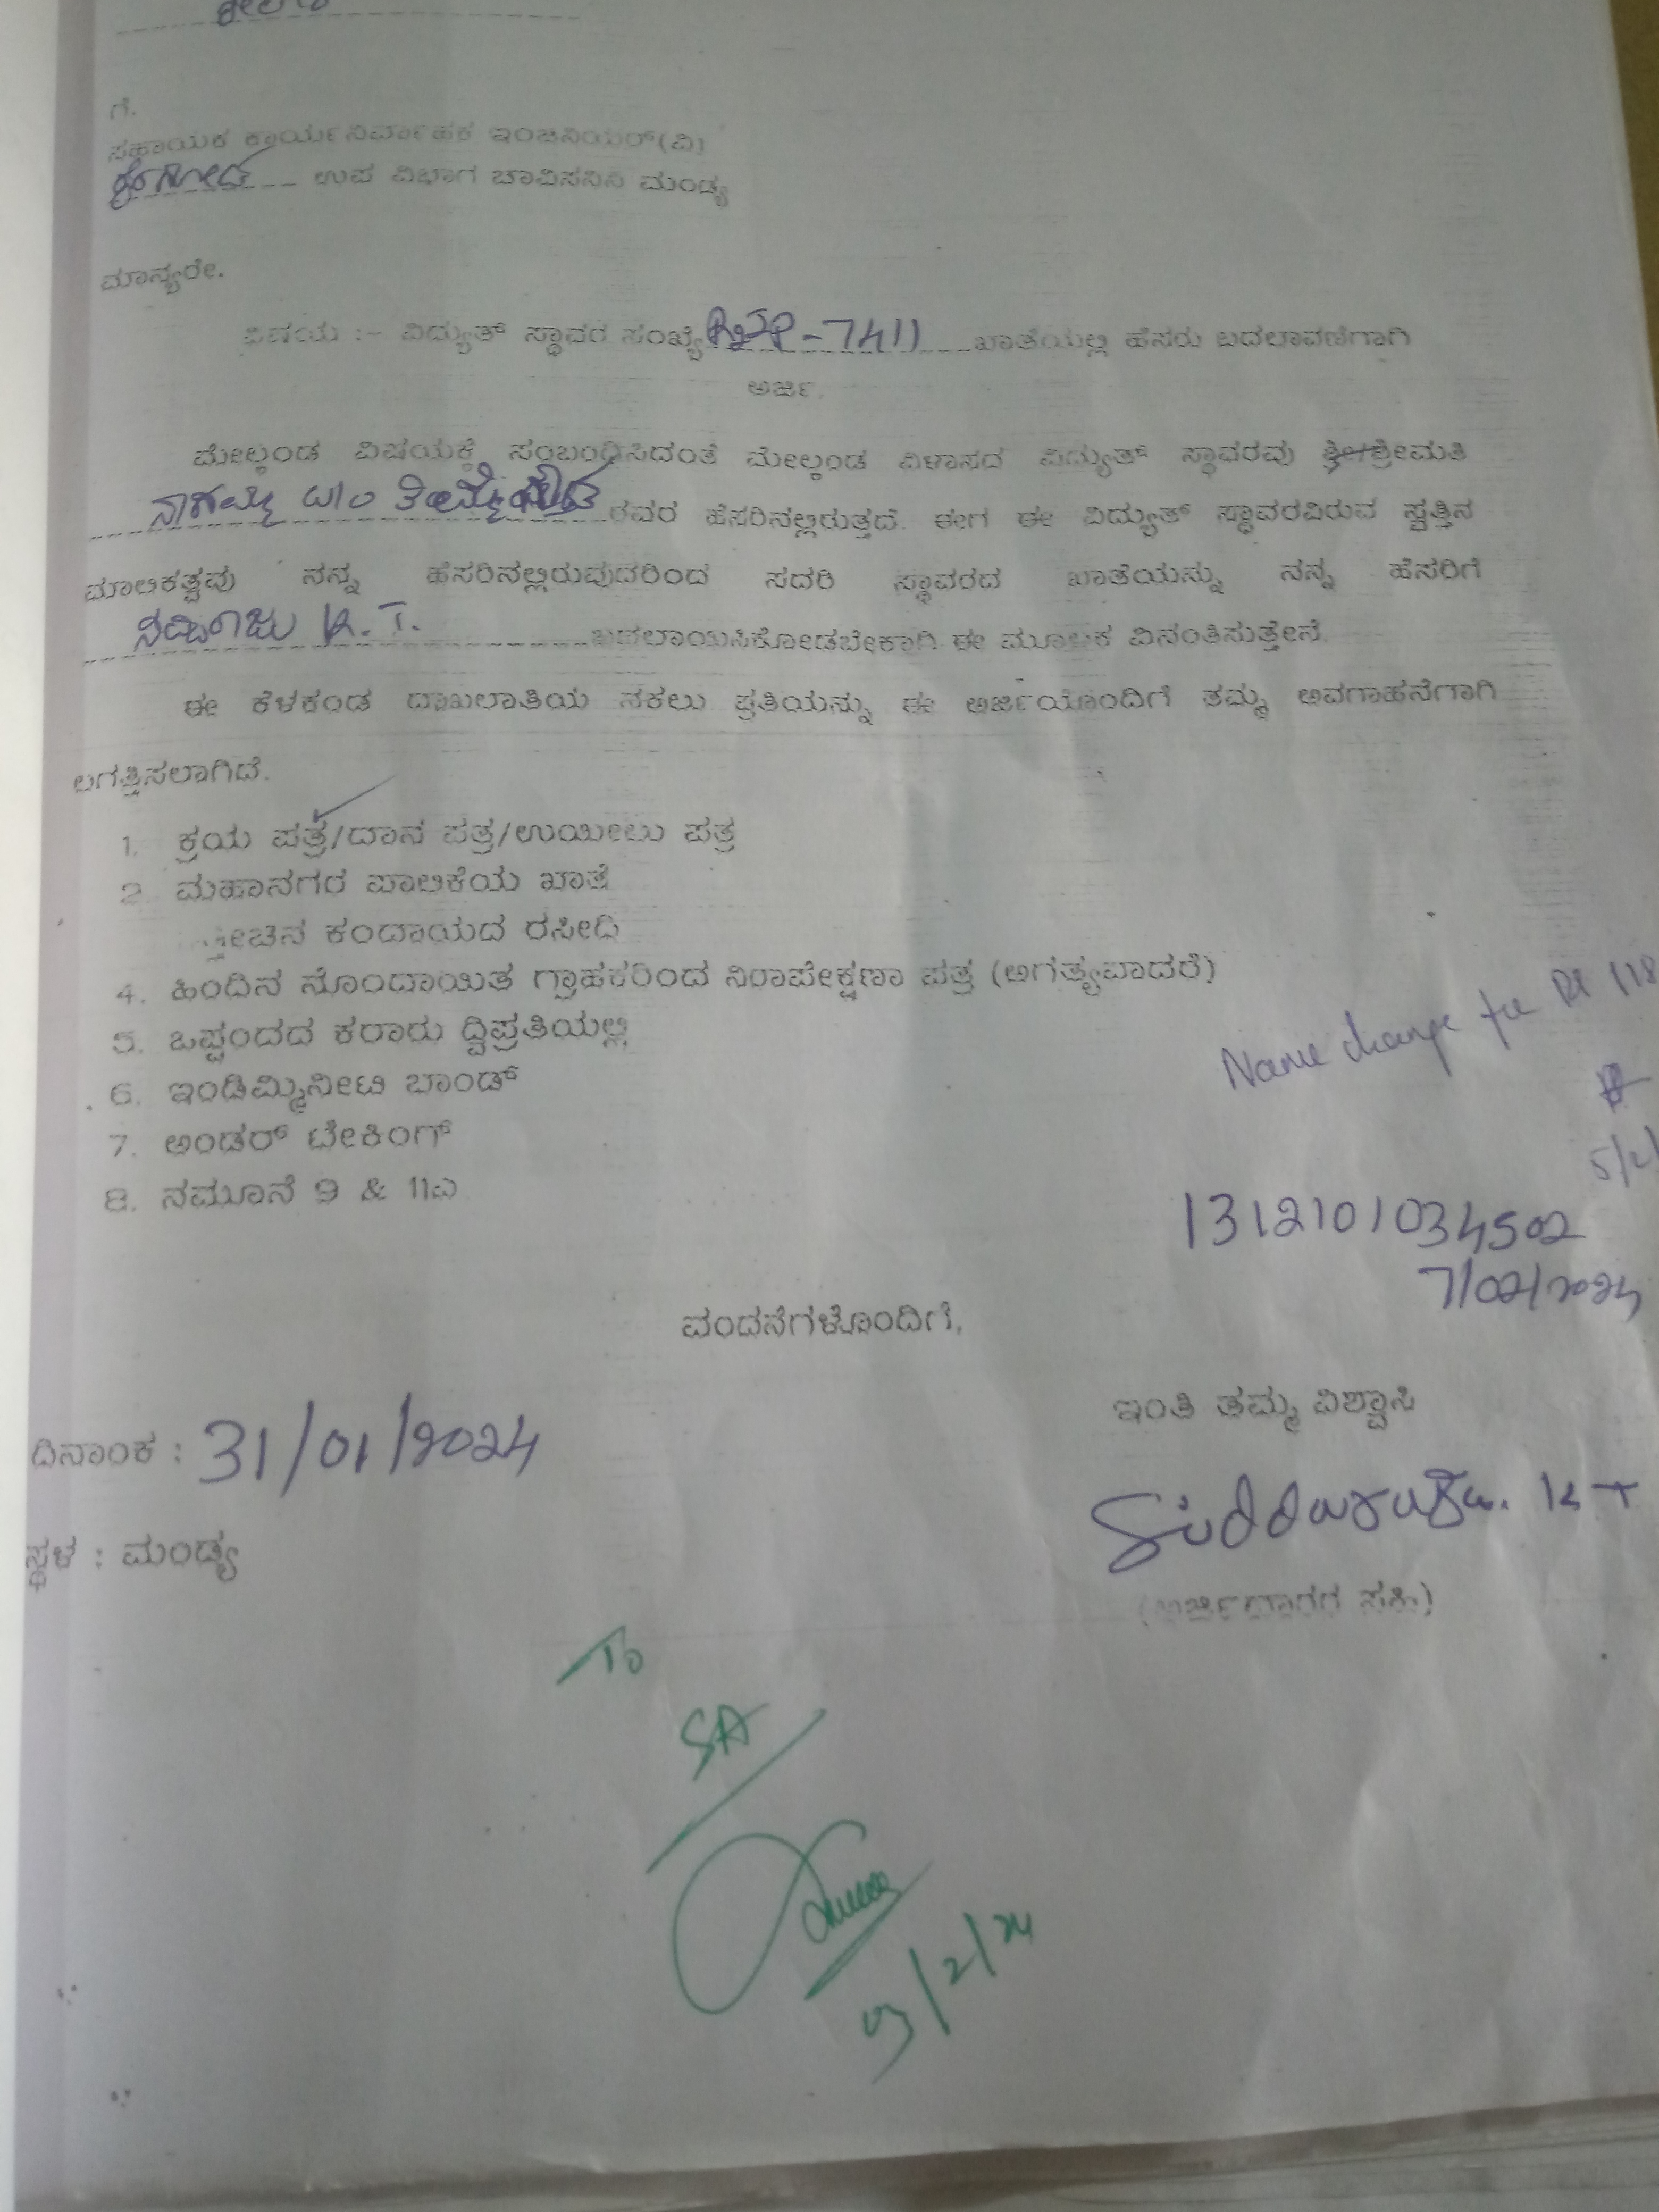 ಗೆ.
ಸಹಾಯಕ ಕಾರ್ಯನಿರ್ವಾಹಕ ಇಂಜಿನಿಯರ್(ವಿ)
ಉಪ ವಿಭಾಗ ಚಾವಿಸನಿನಿ ಮಂಡ್ಯ
ಮಾನ್ಯರೇ.
ವಿಷಯ :- ವಿದ್ಯುತ್ ಸ್ಥಾವರ ಸಂಖ್ಯೆ -7411 ಖಾತೆಯಲ್ಲಿ ಹೆಸರು ಬದಲಾವಣೆಗಾಗಿ
ಅರ್ಜಿ.
ಮೇಲ್ಕಂಡ ವಿಷಯಕ್ಕೆ ಸಂಬಂಧಿಸಿದಂತೆ ಮೇಲ್ಕಂಡ ವಿಳಾಸದ ವಿದ್ಯುತ್ ಸ್ಥಾವರವು ಶ್ರೀ/ಶ್ರೀಮತಿ
W/O ರವರ ಹೆಸರಿನಲ್ಲಿರುತ್ತದೆ. ಈಗ ಈ ವಿದ್ಯುತ್ ಸ್ಥಾವರವಿರುವ ಸ್ವತ್ತಿನ
ಮಾಲಿಕತ್ವವು ನನ್ನ ಹೆಸರಿನಲ್ಲಿರುವುದರಿಂದ ಸದರಿ ಸ್ಥಾವರದ ಖಾತೆಯನ್ನು ನನ್ನ ಹೆಸರಿಗೆ
K.T. ಬದಲಾಯಿಸಿಕೋಡಬೇಕಾಗಿ ಈ ಮೂಲಕ ವಿನಂತಿಸುತ್ತೇನೆ.
ಈ ಕೆಳಕಂಡ ದಾಖಲಾತಿಯ ನಕಲು ಪ್ರತಿಯನ್ನು ಈ ಅರ್ಜಿಯೊಂದಿಗೆ ತಮ್ಮ ಅವಗಾಹನೆಗಾಗಿ
ಲಗತ್ತಿಸಲಾಗಿದೆ.
1. ಕ್ರಯ ಪತ್ರ/ದಾನ ಪತ್ರ/ಉಯೀಲು ಪತ್ರ
2. ಮಹಾನಗರ ಪಾಲಿಕೆಯ ಖಾತೆ
ಕಂದಾಯದ ರಸೀದಿ
4. ಹಿಂದಿನ ನೊಂದಾಯಿತ ಗ್ರಾಹಕರಿಂದ ನಿರಾಪೇಕ್ಷಣಾ ಪತ್ರ (ಅಗತ್ಯವಾದರೆ)
5. ಒಪ್ಪಂದದ ಕರಾರು ದ್ವಿಪ್ರತಿಯಲ್ಲಿ
6. ಇಂಡಿಮ್ನಿನೀಟಿ ಬಾಂಡ್
7. ಅಂಡರ್ ಟೇಕಿಂಗ್
8. ನಮೂನೆ 9 & 11ಎ
Name change fee 118
5/2/
1312101034502
7/02/2024
ವಂದನೆಗಳೊಂದಿಗೆ,
ಇಂತಿ ತಮ್ಮ ವಿಶ್ವಾಸಿ
ದಿನಾಂಕ : 31/01/2024
Siddaraju. K T
ಸ್ಥಳ : ಮಂಡ್ಯ
(ಅರ್ಜಿದಾರರ ಸಹಿ)
To
SA
03/2/24